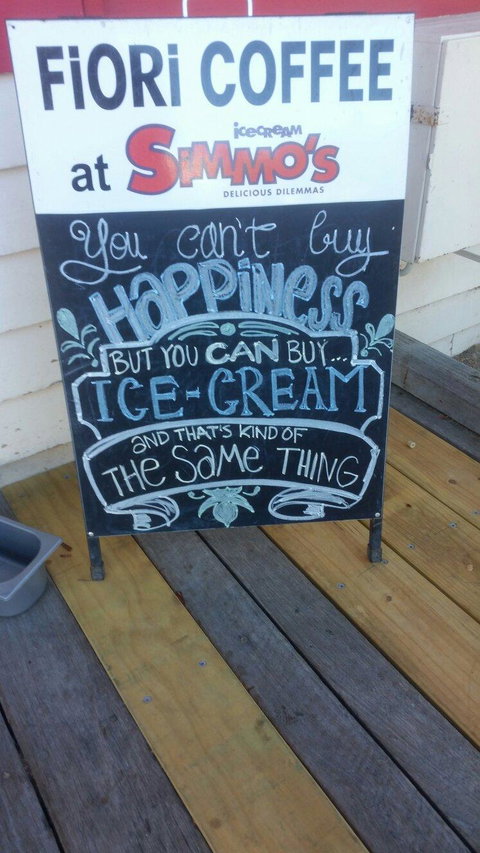 FiORi COFFEE
icecream
at SiMMO'S
DELICIOUS DILEMMAS
You can't buy
HAPPiNess
BUT YOU CAN BUY...
ICE-CREAM
AND THAT'S KIND OF
THE SAME THING